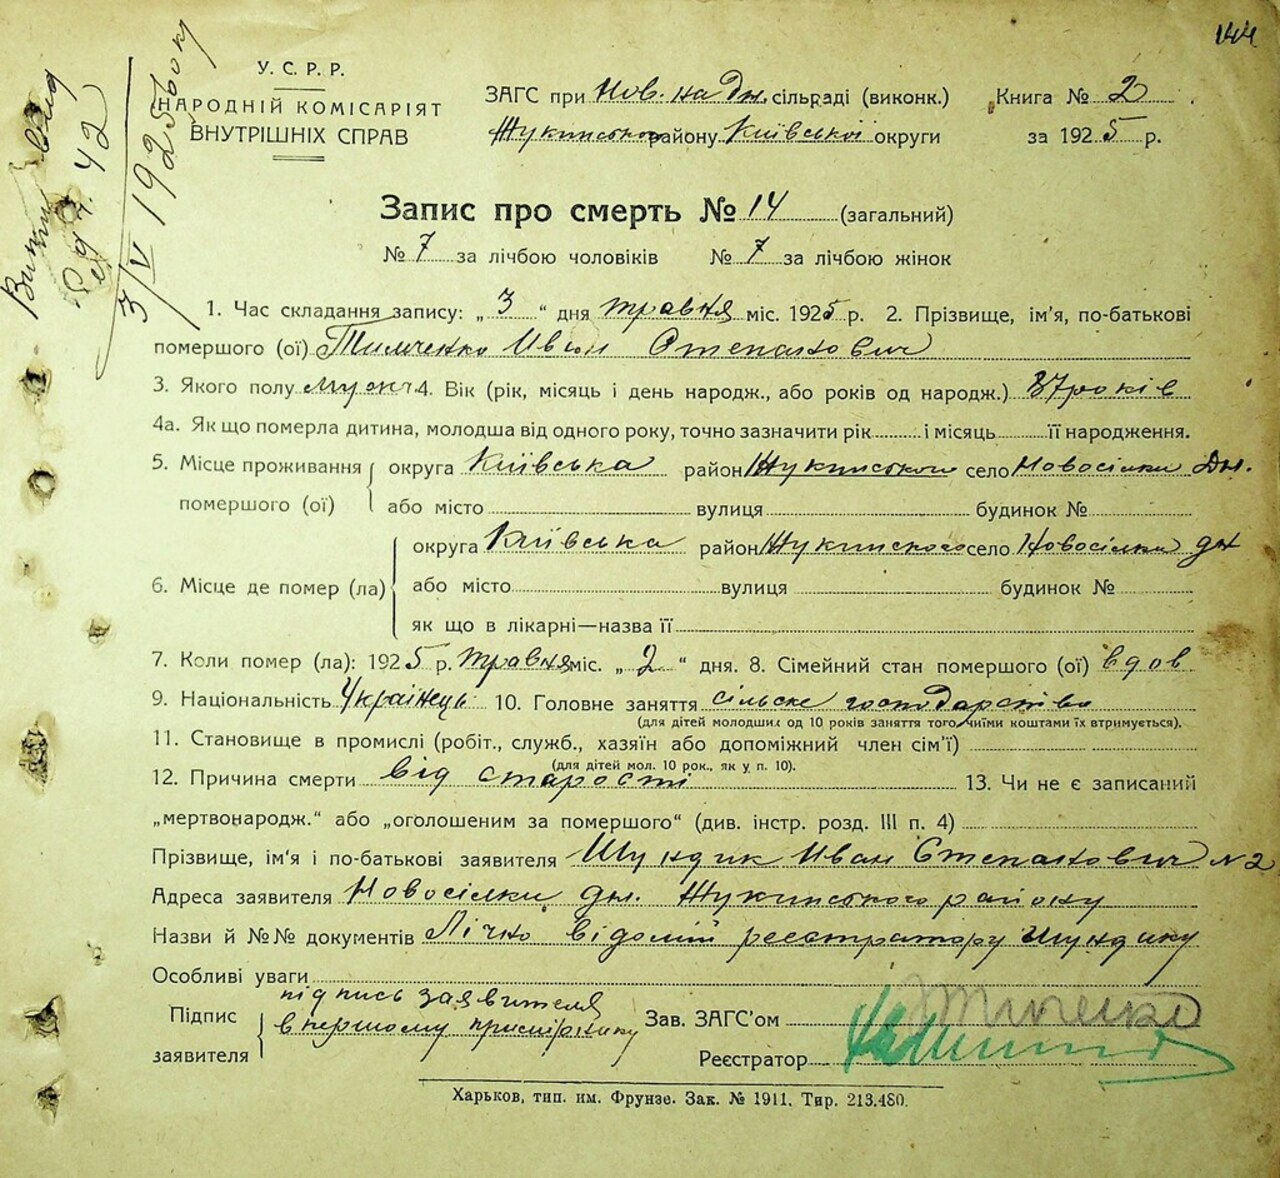 144
У. С. Р. Р.
НАРОДНІЙ КОМІСАРІЯТ
ВНУТРІШНІХ СПРАВ
ЗАГС при Нов. на Дн. сільраді (виконк.)
Жукинського району Київської округи
Книга № 2
за 1925 р.
3/V 1925 року
Запис про смерть № 14 (загальний)
№ 7 за лічбою чоловіків № 7 за лічбою жінок
1. Час складання запису: „ 3 “ дня травня міс. 1925 р. 2. Прізвище, ім’я, по-батькові
помершого (ої) Тимченко Иван Степанович
3. Якого полу мужч. 4. Вік (рік, місяць і день народж., або років од народж.) 87 років
4а. Як що померла дитина, молодша від одного року, точно зазначити рік і місяць її народження.
5. Місце проживання помершого (ої) округа Київська район Жукинського село Новосілки Дн.
або місто вулиця будинок №
6. Місце де помер (ла) округа Київська район Жукинского село Новосілки дн
або місто вулиця будинок №
як що в лікарні—назва її
7. Коли помер (ла): 1925 р. травня міс. „ 2 “ дня. 8. Сімейний стан помершого (ої) вдов
9. Національність Українець 10. Головне заняття сільске господарство
(для дітей молодших од 10 років заняття того, чиїми коштами їх втримується).
11. Становище в промислі (робіт., служб., хазяїн або допоміжний член сім’ї)
(для дітей мол. 10 рок., як у п. 10).
12. Причина смерти від старості 13. Чи не є записаний
„мертвонародж.“ або „оголошеним за помершого“ (див. інстр. розд. III п. 4)
Прізвище, ім’я і по-батькові заявителя Шундик Иван Степанович N 2
Адреса заявителя Новосілки дн. Жукинського району
Назви й №№ документів Лічно відомій реєстратору Шундику
Особливі уваги
Підпис заявителя підпись заявителя
в першому примірнику
Зав. ЗАГС’ом
Реєстратор
Харьков, тип. им. Фрунзе. Зак. № 1911. Тир. 213.480.